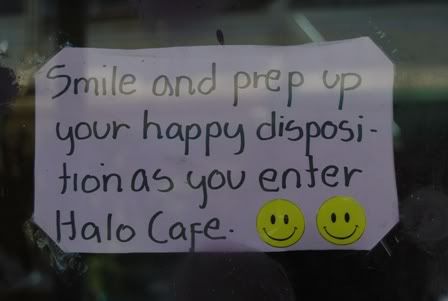 Smile and prep up
your happy disposi-
tion as you enter
Halo Cafe.